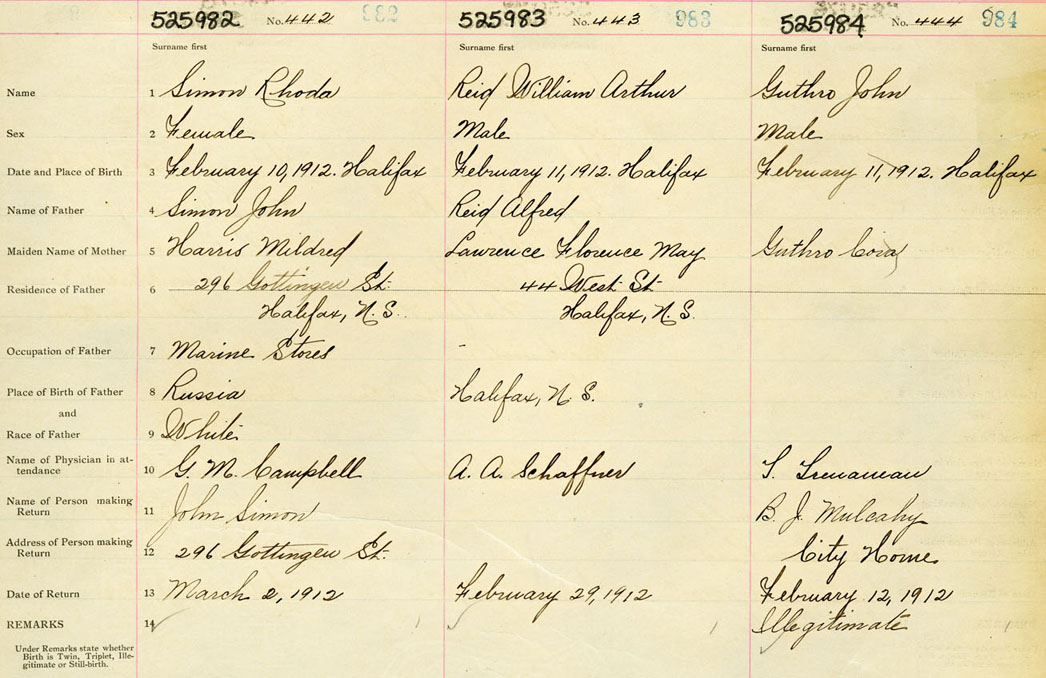 525982 No. 442 982 525983 No. 443 983 525984 No. 444 984
Surname first Surname first Surname first
Name 1 Simon Rhoda Reid William Arthur Guthro John
Sex 2 Female Male Male
Date and Place of Birth 3 February 10, 1912. Halifax February 11, 1912. Halifax February 11, 1912. Halifax
Name of Father 4 Simon John Reid Alfred
Maiden Name of Mother 5 Harris Mildred Lawrence Florence May Guthro Cora
Residence of Father 6 296 Gottingen St. 44 West St.
Halifax, N.S. Halifax, N.S.
Occupation of Father 7 Marine Stores -
Place of Birth of Father 8 Russia Halifax, N.S.
and
Race of Father 9 White
Name of Physician in at-
tendance 10 G. M. Campbell A. A. Schaffner
Name of Person making
Return 11 John Simon B. J. Mulcahy
Address of Person making
Return 12 296 Gottingen St. City Home
Date of Return 13 March 2, 1912 February 29, 1912 February 12, 1912
REMARKS 14 Illegitimate
Under Remarks state whether
Birth is Twin, Triplet, Ille-
gitimate or Still-birth.